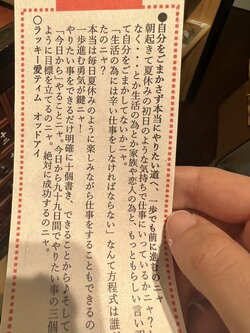 ●自分をごまかさず本当にやりたい道へ、一歩でも前に進むのニャ
朝起きて夏休みの初日のような気持ちで仕事に行っているかニャ？
なく・・・とか生活の為とか家族や恋人の為と、もっともらしい言い
て自分をごまかしてないかニャ。
「生活の為には辛い仕事をしなければならない」なんて方程式は誰
たのニャ？
本当は毎日夏休みのように楽しみながら仕事をすることもできるの
一歩進む勇気が鍵ニャ！
やりたい事をできるだけ明確に十個書き、できることから♪そして
「今日からやること」「今日から九十九日間でやりたい事の三個
ように目標を立てるのニャ。絶対に成功するのニャ。
○ラッキー愛ティム　オッドアイ